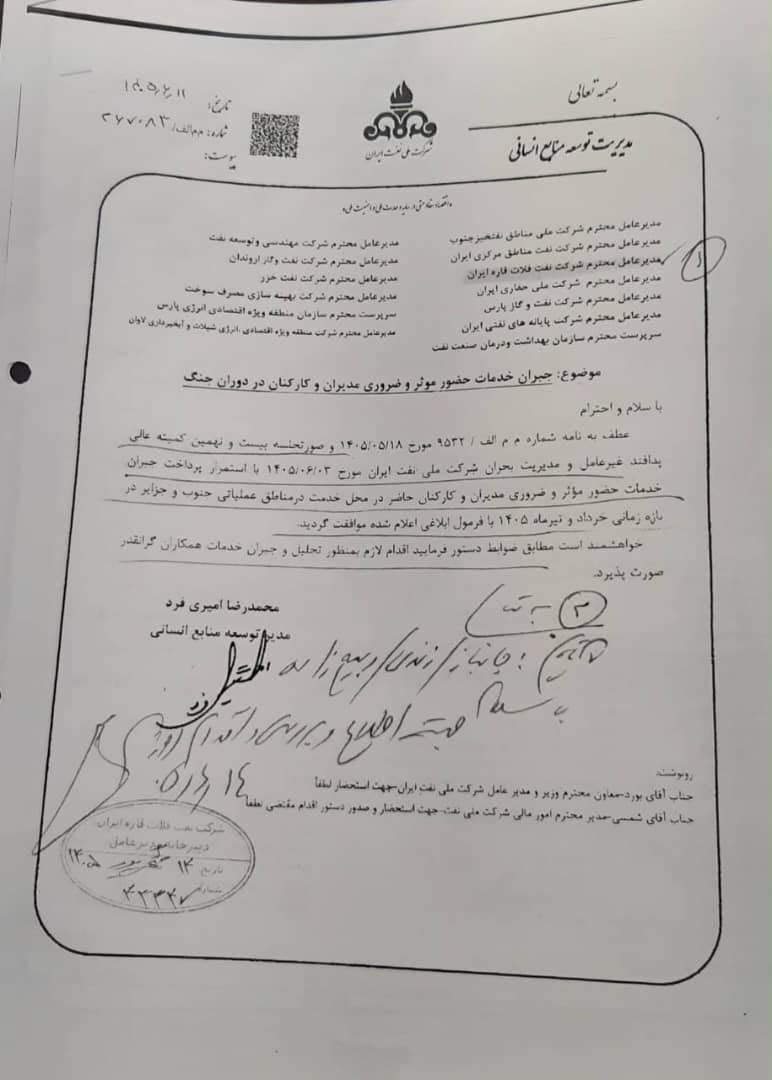 بسمه تعالی
مدیریت توسعه منابع انسانی
شرکت ملی نفت ایران
تاریخ: ۱۴۰۵/۶/۱۱
شماره: م م الف/ ۲۶۷۰۸۳
پیوست:
مدیرعامل محترم شرکت ملی مناطق نفتخیز جنوب
مدیرعامل محترم شرکت نفت مناطق مرکزی ایران
مدیرعامل محترم شرکت نفت فلات قاره ایران
مدیرعامل محترم شرکت ملی حفاری ایران
مدیرعامل محترم شرکت نفت و گاز پارس
مدیرعامل محترم شرکت پایانه های نفتی ایران
سرپرست محترم سازمان بهداشت ودرمان صنعت نفت
مدیرعامل محترم شرکت مهندسی وتوسعه نفت
مدیرعامل محترم شرکت نفت وگاز اروندان
مدیرعامل محترم شرکت نفت خزر
مدیرعامل محترم شرکت بهینه سازی مصرف سوخت
سرپرست محترم سازمان منطقه ویژه اقتصادی انرژی پارس
مدیرعامل محترم شرکت منطقه ویژه اقتصادی ،انرژی شیلات و آبخیرداری لاوان
۱
موضوع: جبران خدمات حضور موثر و ضروری مدیران و کارکنان در دوران جنگ
با سلام و احترام
عطف به نامه شماره م م الف / ۹۵۳۲ مورخ ۱۴۰۵/۰۵/۱۸ و صورتجلسه بیست و نهمین کمیته عالی
پدافند غیرعامل و مدیریت بحران شرکت ملی نفت ایران مورخ ۱۴۰۵/۰۶/۰۳ با استمرار پرداخت جبران
خدمات حضور مؤثر و ضروری مدیران و کارکنان حاضر در محل خدمت درمناطق عملیاتی جنوب و جزایر در
بازه زمانی خرداد و تیرماه ۱۴۰۵ با فرمول ابلاغی اعلام شده موافقت گردید.
خواهشمند است مطابق ضوابط دستور فرمایید اقدام لازم بمنظور تجلیل و جبران خدمات همکاران گرانقدر
صورت پذیرد.
محمدرضا امیری فرد
مدیر توسعه منابع انسانی
۲
جهت اطلاع و بررسی و اقدام
رونوشت:
جناب آقای بورد-معاون محترم وزیر و مدیر عامل شرکت ملی نفت ایران-جهت استحضار لطفاً
جناب آقای شمسی-مدیر محترم امور مالی شرکت ملی نفت-جهت استحضار و صدور دستور اقدام مقتضی لطفاً
شرکت نفت فلات قاره ایران
دبیرخانه مدیرعامل
تاریخ ۱۴ شهریور ۱۴۰۵
شماره